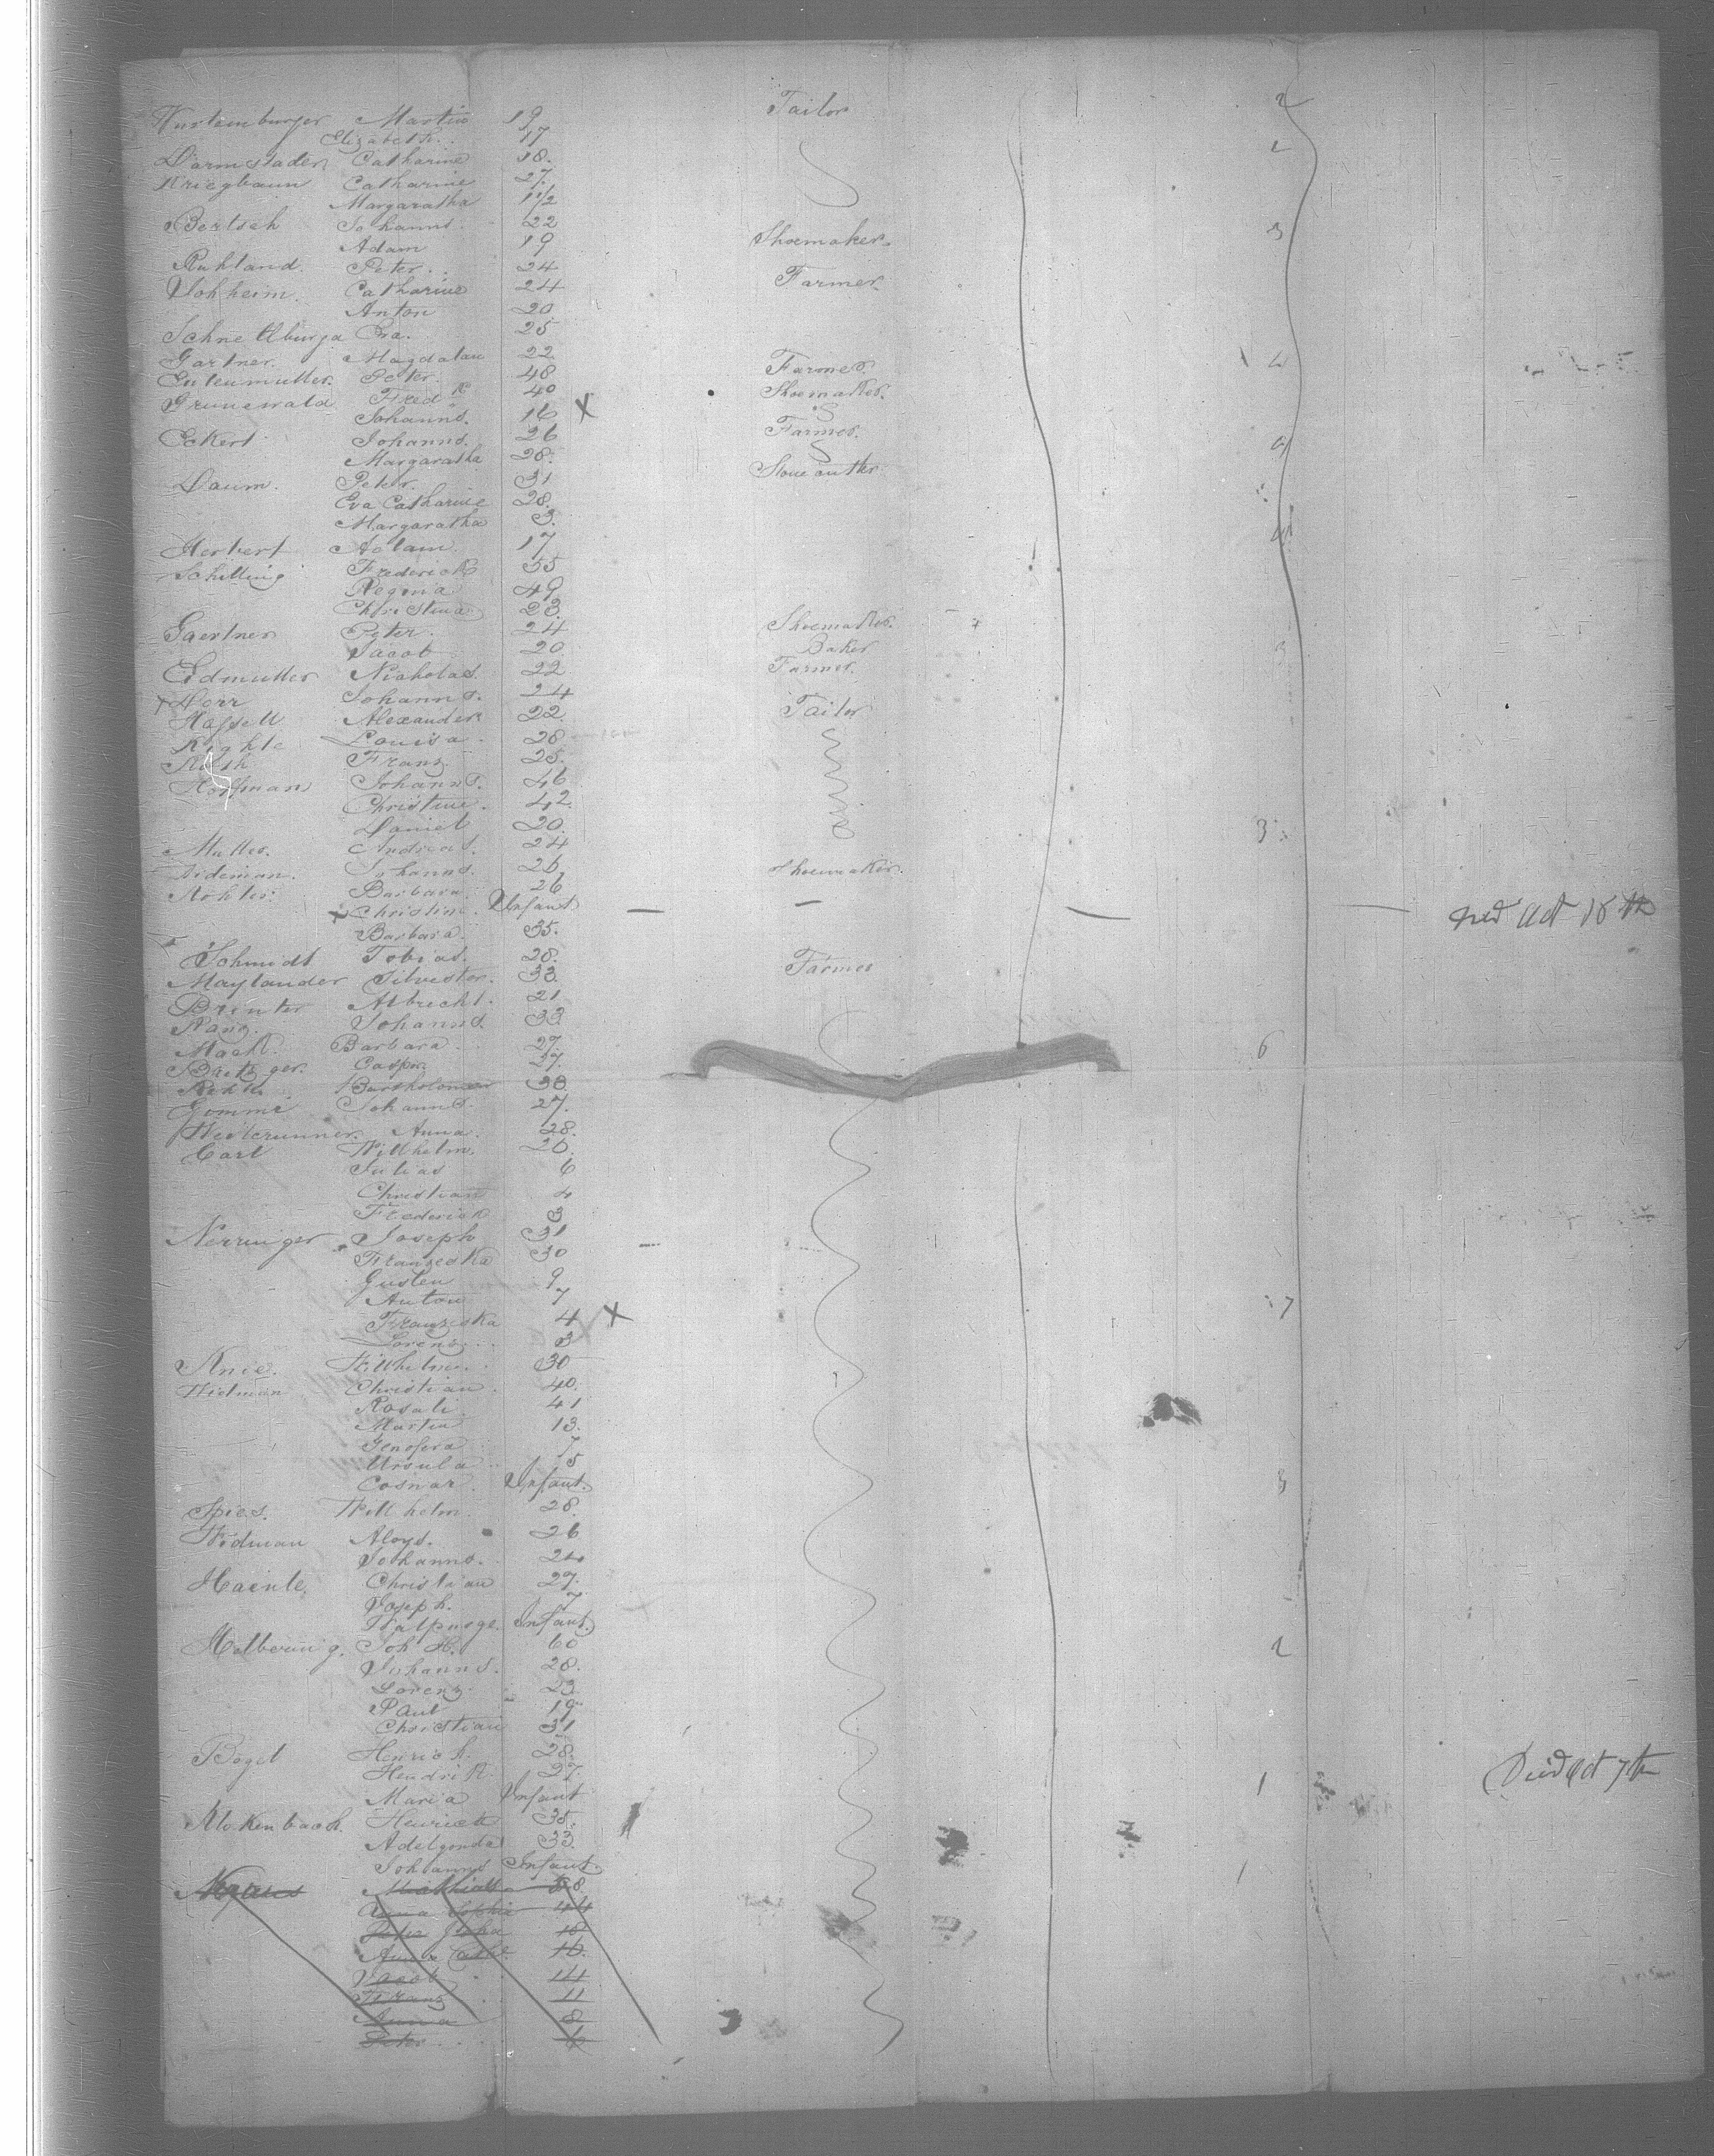 Martin 19 Tailor 2
Elizabeth 17
Darmstader Catharine 18. 2
Kriegbaum Catharine 27.
Margaratha 1 1/2
Bertsch Johanns. 22 3
Adam 19 Shoemaker.
Ruhland. Peter. 24
Catharine 24 Farmer.
Anton 20
Eva. 25
Gartner. Magdalan 22 4
Gutenmutter. Peter. 48 Farmer.
Grunewald Fredk 40 Shoemaker.
Johanns. 16 X
Eckert Johanns. 26 Farmer.
Margaratha 28.
Daum. Peter. 31 Stone cutter
Eva Catharine 28.
Margaratha 3.
Herbert Adam. 17
Schilling Frederick 55
Regina 49
Christina 23.
Gaertner Peter. 24 Shoemaker.
Jacob 20 Baker 3
Edmutter Nicholas. 22 Farmer.
X Dorr Johanns. 24
Hassell Alexander 22. Tailor
Louisa 28
Franz. 25.
Hoffman Johanns. 46
Christine. 42.
Daniel 20. 3
Muller. Andreas. 24
Johanns. 26, Shoemaker.
Kohler. Barbara. 26
X Christin. Infant. — — — — Died Oct 18th
Barbara. 35.
Schmidt Tobias. 28. Farmer
Maylander Silvester. 33.
Albrecht. 21
Johanns. 33.
Barbara. 27. 6
Caspr. 27.
Bartholomew 30.
Johanns. 27.
Anna. 28.
Carl Willhelm. 26.
Julias 6
Christian 4
Frederick 3
Nerringer Joseph 31
Franzeska 30
Gusten 9
Anton 7 7
Franzeska 4 X
Lorenz. 3
Willhelm. 30
Widman Christian. 40.
Rosali 41
Martin 13.
Genofera 7
Ursula 5
Cosnar. Infant. 3
Spies. Willhelm 28.
Widman Aloys. 26
Johanns. 24
Hainle. Christian 27.
Joseph. 7
Infant.
Joh H. 60 2
Johanns. 28.
Lorenz 23
Paul 19
Christian 31
Henrich. 28.
Hendrik. 27. 1 Died Oct 7th
Maria Infant
Klokenbach. Henrich 35.
Adelgonde 33.
Johanns Infant. 1
Mathias 58
Anna Sophia 44
John 18
Anna Cath. 16.
Jacob 14
Franz 11
Anna 8
Peter 6